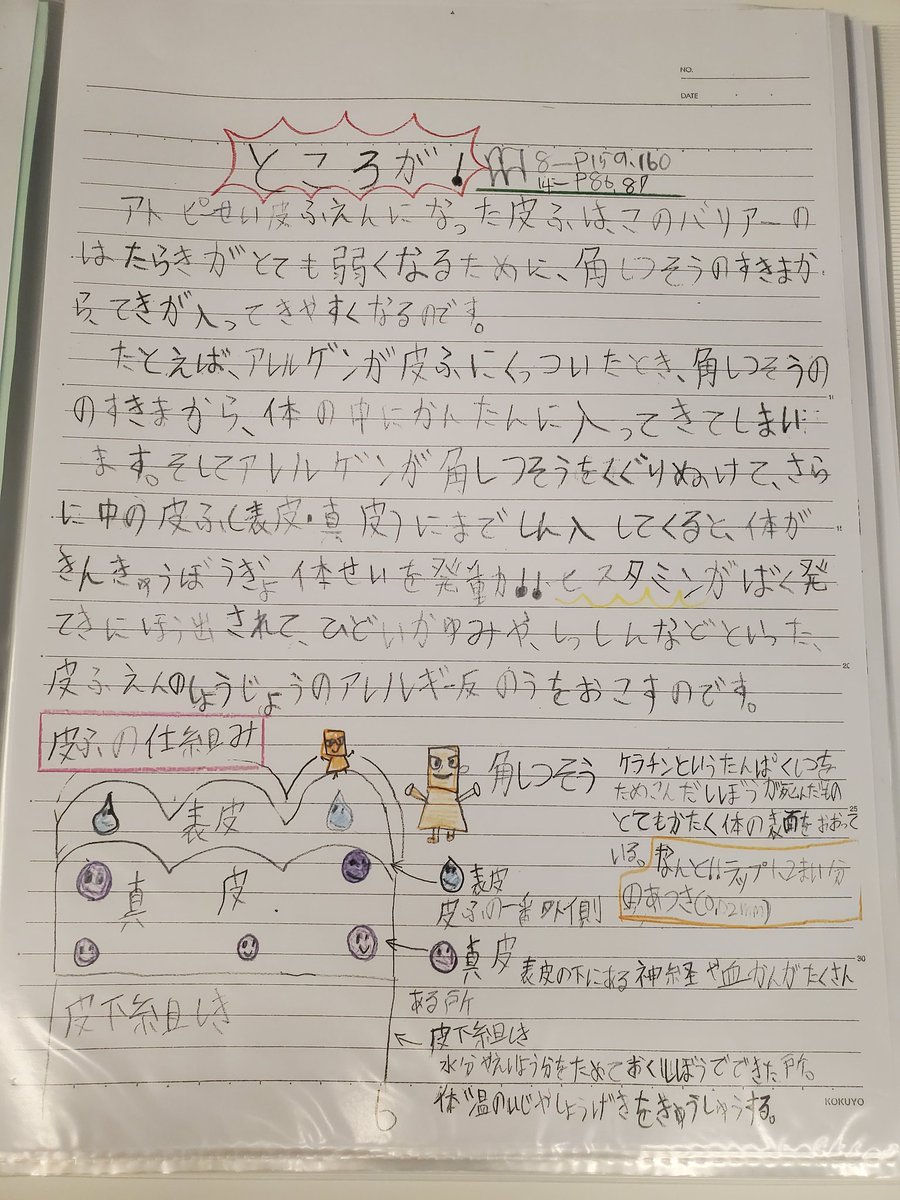 NO.
DATE
ところが!
8-P159.160
14-P86,87
アトピせい皮ふえんになった皮ふは、このバリアーの
はたらきがとても弱くなるために、角しつそうのすきまか
ら、てきが入ってきやすくなるのです。
たとえば、アレルゲンが皮ふにくっついたとき、角しつそうの
のすきまから、体の中にかんたんに入ってきてしまい
ます。そしてアレルゲンが角しつそうをくぐりぬけて、さら
に中の皮ふ(表皮・真皮)にまでしん入してくると、体が
きんきゅうぼうぎょ体せいを発動!!ヒスタミンがばく発
てきにほう出されて、ひどいかゆみや、しっしんなどといった、
皮ふえんのしょうじょうのアレルギー反のうをおこすのです。
皮ふの仕組み
角しつそう
ケラチンというたんぱくしつを
ためこんださいぼうが死んだもの
とてもかたく体の表面をおおって
いる。なんとラップ2まい分
のあつさ(0.02mm)
表皮
真皮
皮下組しき
表皮
皮ふの一番外側
真皮
表皮の下にある神経や血かんがたくさん
ある所
皮下組しき
水分やえいよう分をためておくしぼうでできた所。
体温のいじやしょうげきをきゅうしゅうする。
6
KOKUYO